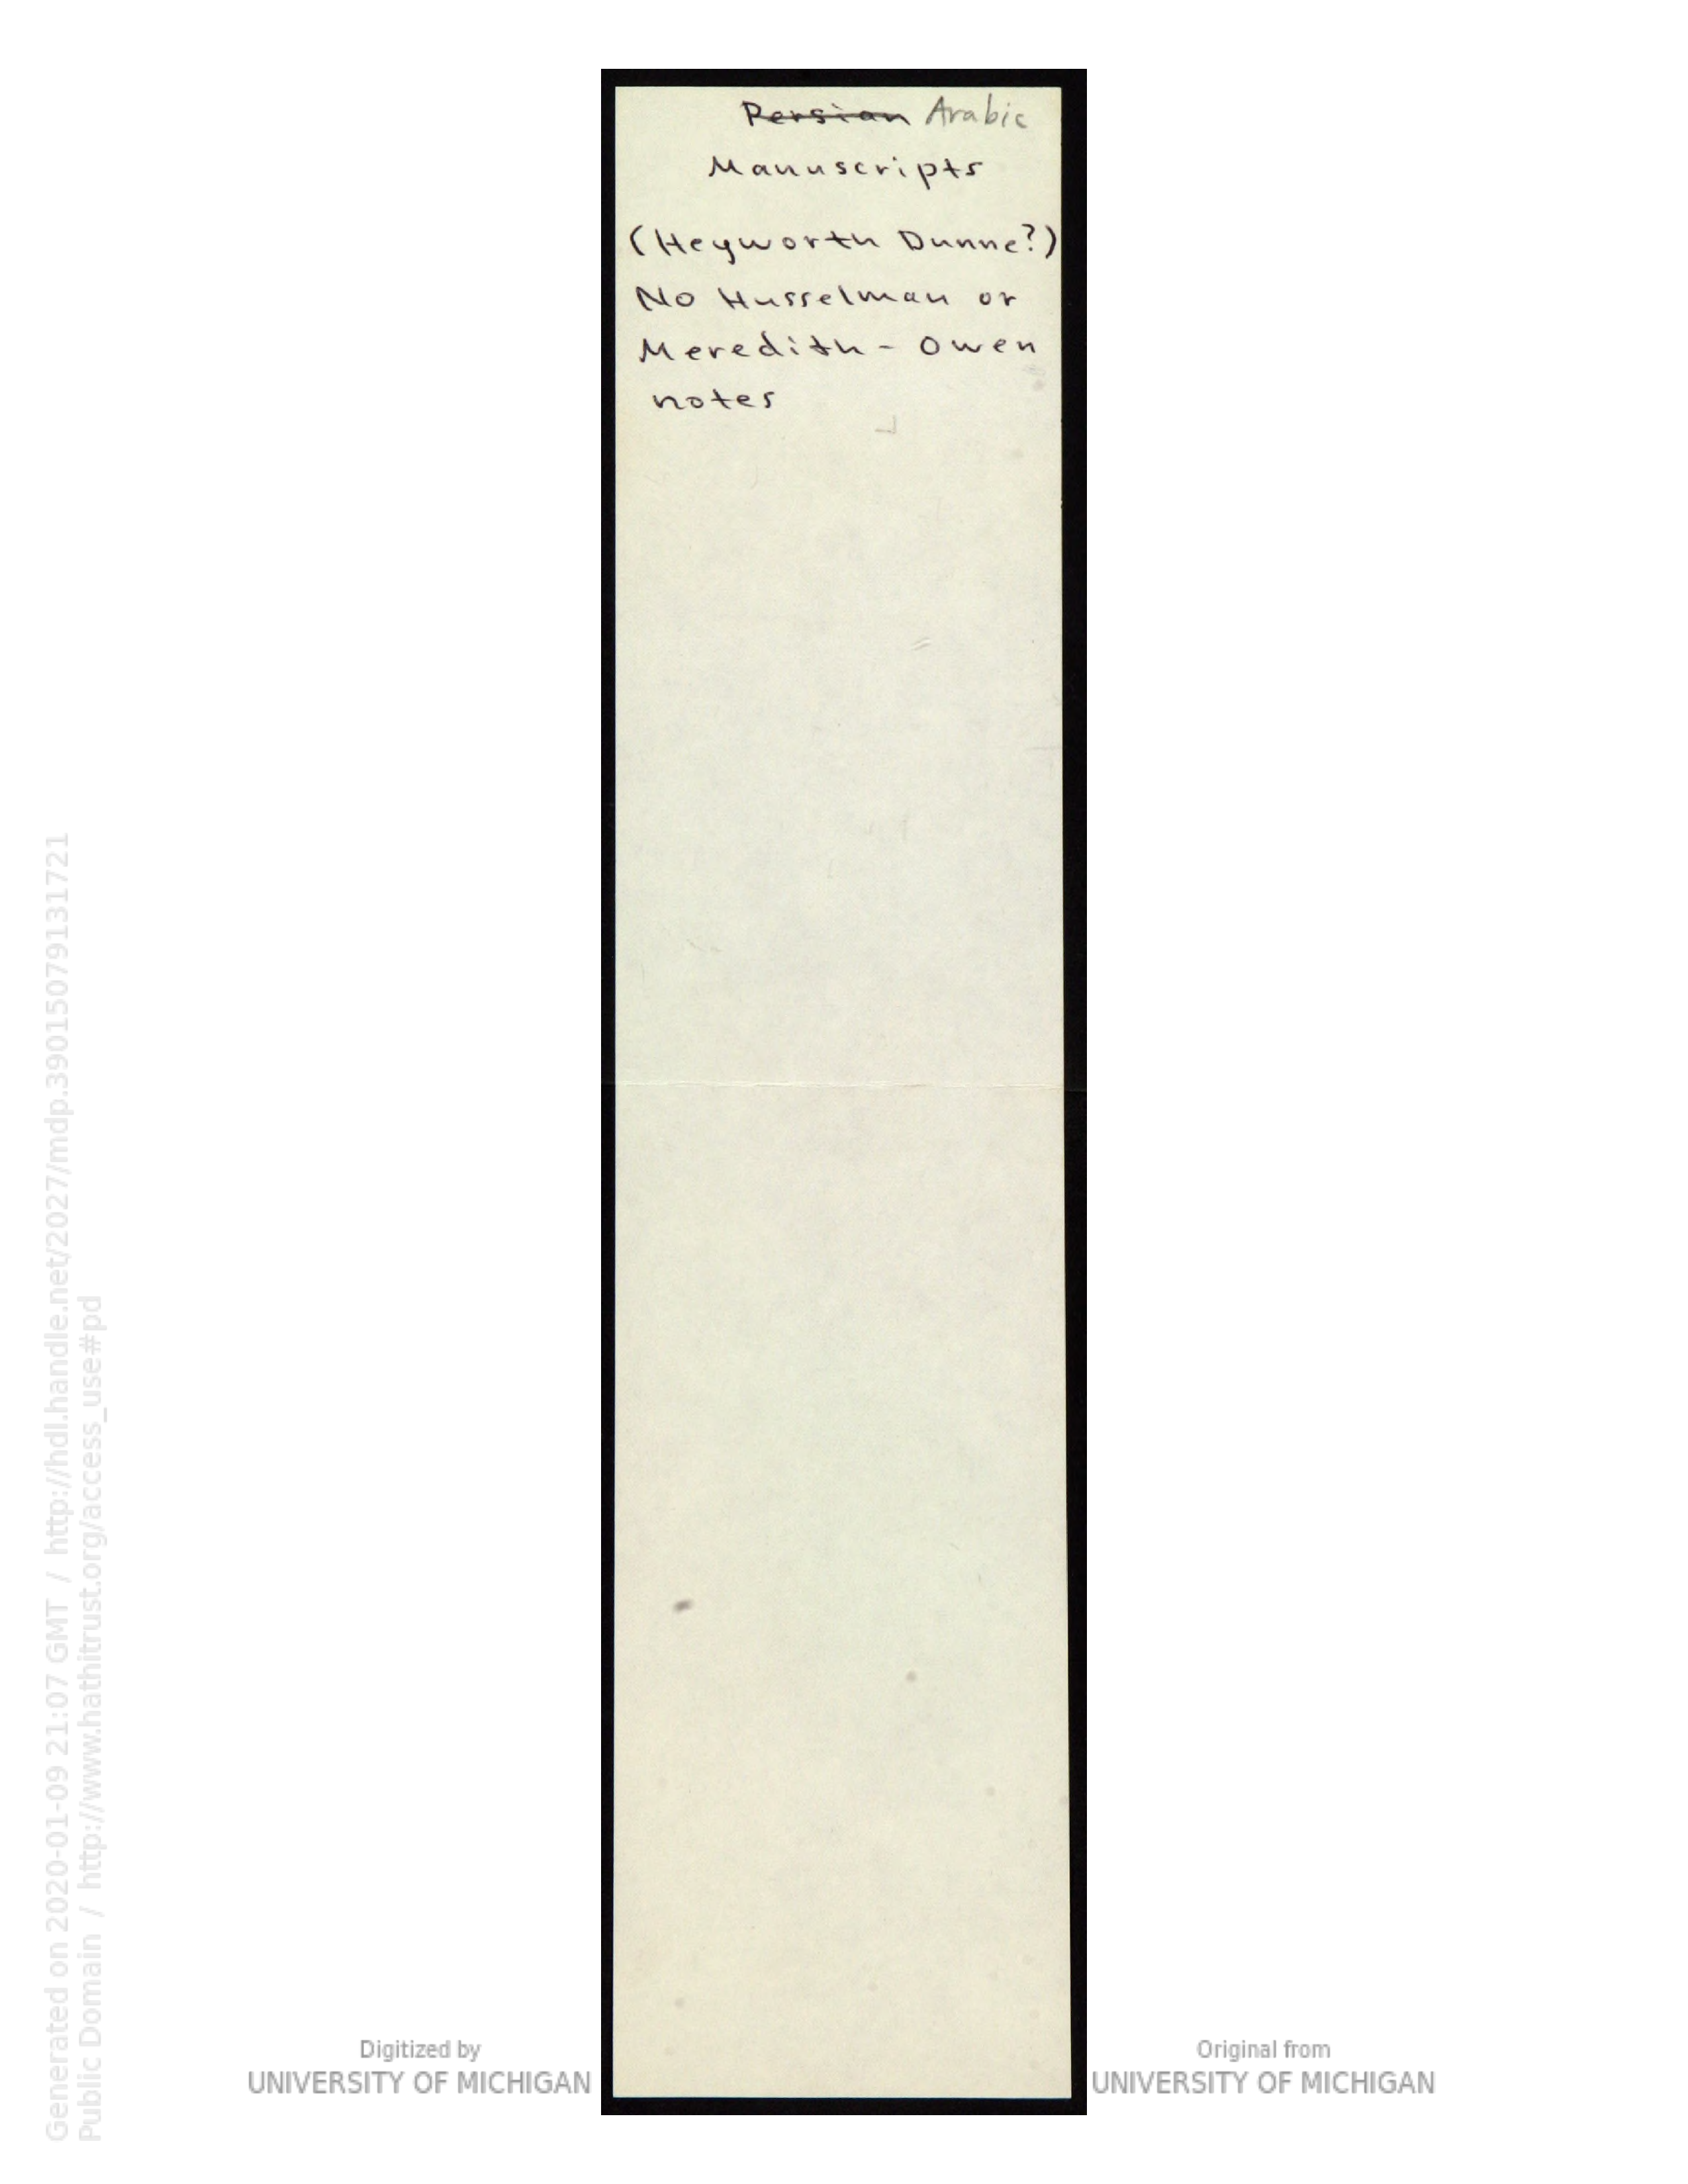 Persian Arabic
Manuscripts
(Heyworth Dunne?)
No Husselman or
Meredith - Owen
notes
Generated on 2020-01-09 21:07 GMT / http://hdl.handle.net/2027/mdp.39015079131721
Public Domain / http://www.hathitrust.org/access_use#pd
Digitized by
UNIVERSITY OF MICHIGAN
Original from
UNIVERSITY OF MICHIGAN